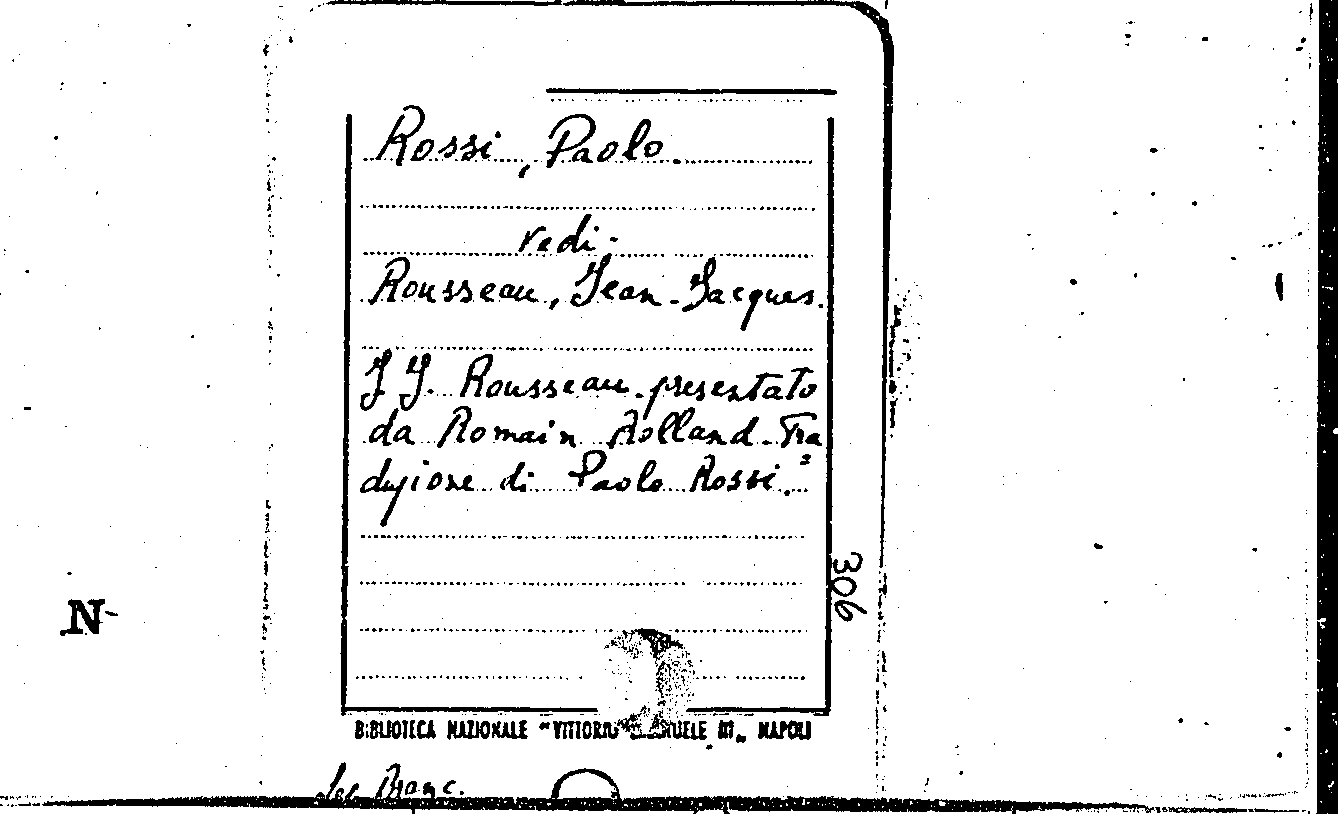 Rossi, Paolo.
vedi.
Rousseau, Jean-Jacques.
J J. Rousseau presentato
da Romain Rolland. Tra
duzione di Paolo Rossi.²
306
N
BIBLIOTECA NAZIONALE "VITTORIO EMANUELE III„ NAPOLI